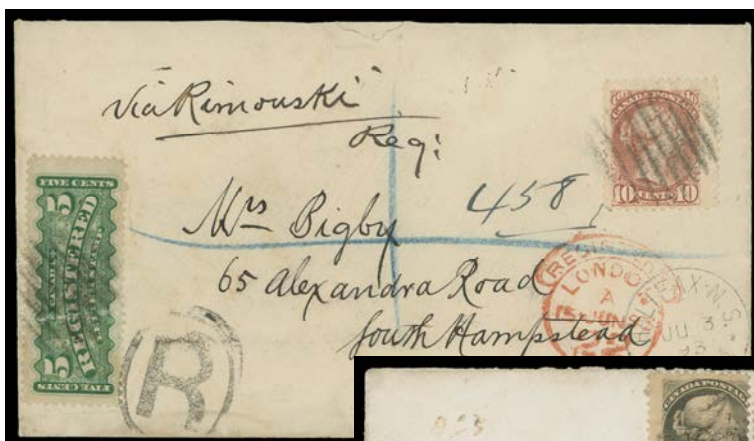 via Rimouski
Reg:
CANADA POSTAGE
10 CENTS 10
FIVE CENTS
5 REGISTERED 5
FIVE CENTS
Mrs Bigby
458
65 Alexandra Road
South Hampstead
R
REGISTERED
LONDON
A
JUN
HALIFAX N.S.
JU 3
93
CANADA POSTAGE